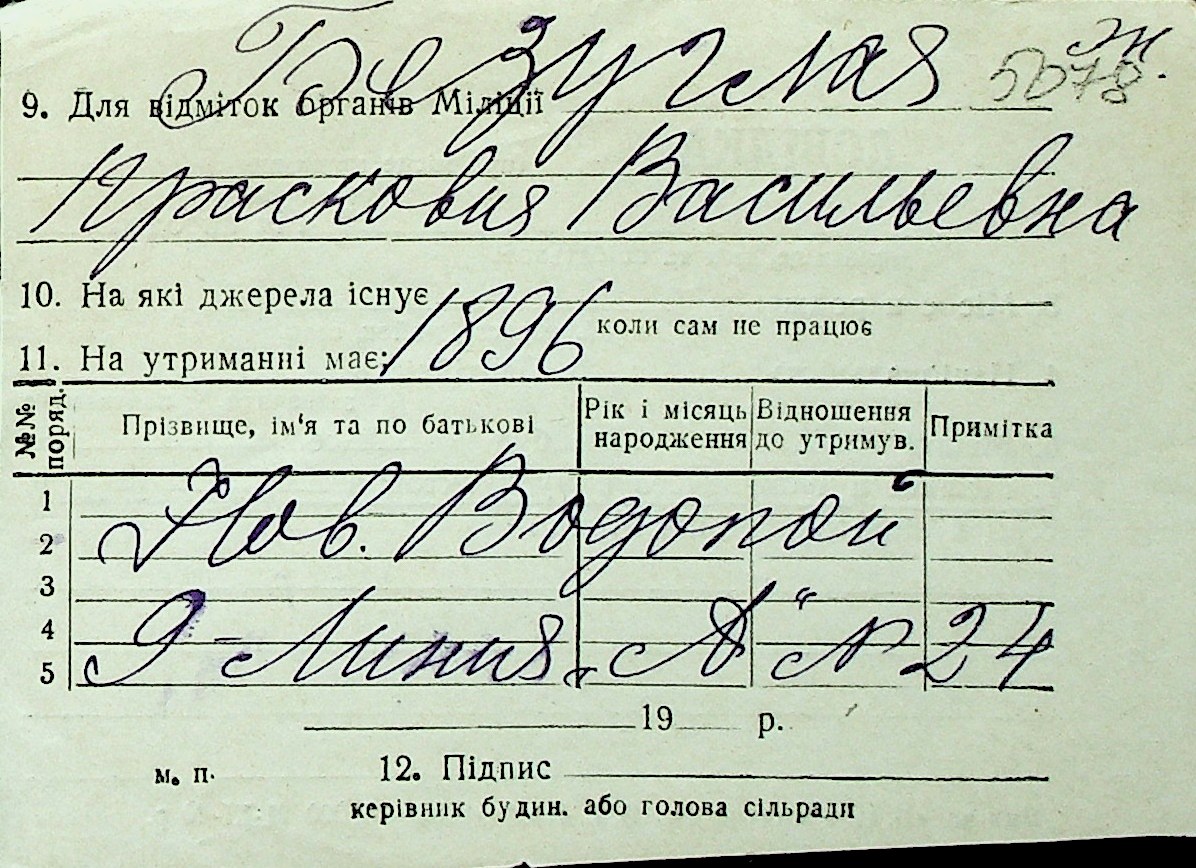 Безуглая
эн.
5078
9. Для відміток органів Міліції
Прасковия Васильевна
10. На які джерела існує
1896
коли сам не працює
11. На утриманні має:
№№ поряд.
Прізвище, ім'я та по батькові
Рік і місяць народження
Відношення до утримув.
Примітка
1
Нов. Водопой
2
3
4
9-Линия „А“ № 24
5
19 р.
м. п.
12. Підпис
керівник будин. або голова сільради